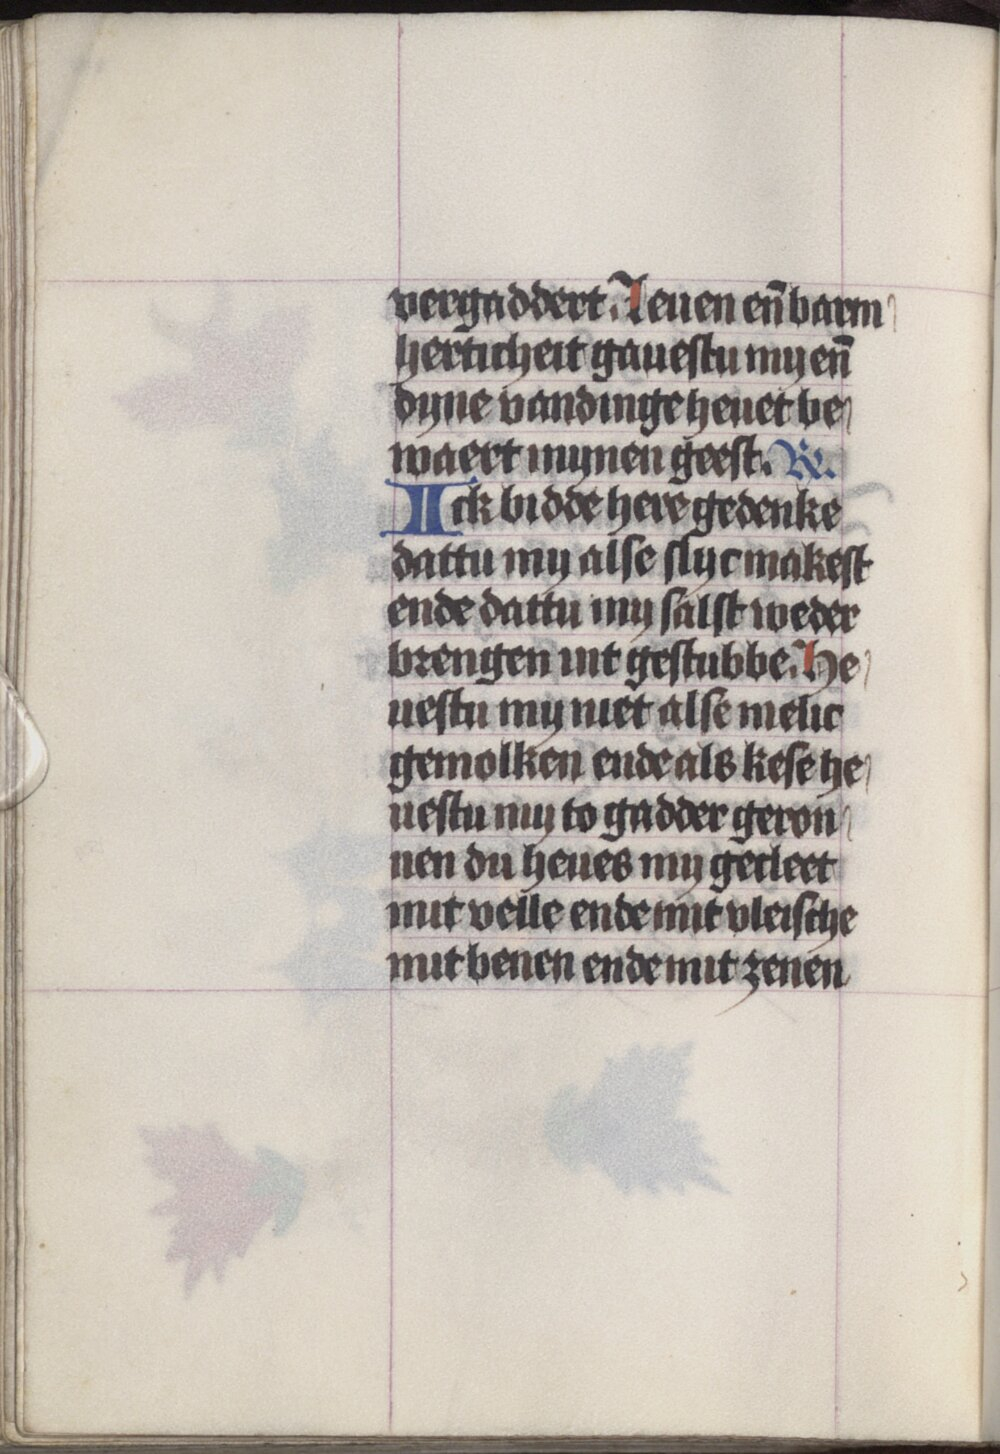 vergaddert. Leuen en̄ barm
herticheit gauestu my en̄
dyne vandinge heuet be
waert mynen geest. R.
Ick bidde here gedenke
dattu my alse slyc makest
ende dattu my salst weder
brengen int gestubbe. He
uestu my niet alse melic
gemolken ende als kese he
uestu my to gadder geron
nen du heues my gecleet
mit velle ende mit vleische
mit benen ende mit zenen